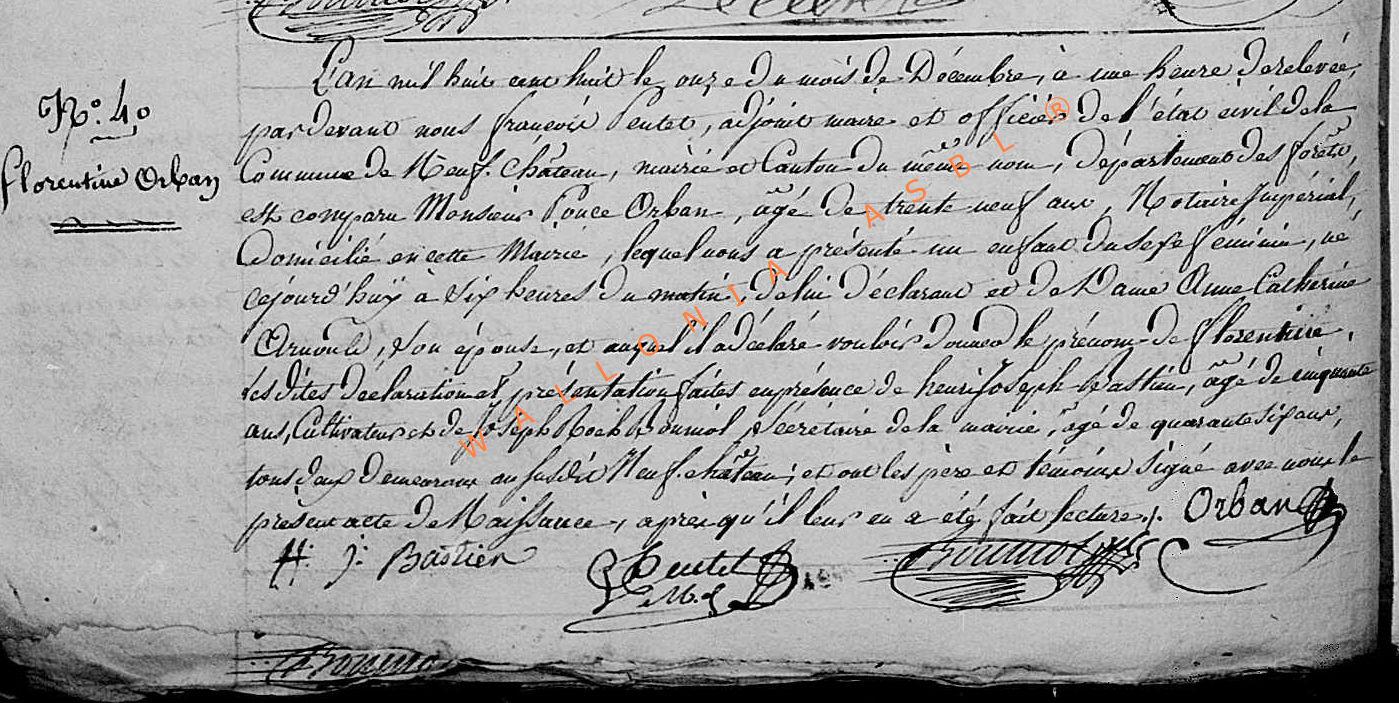 N.º 40
florentine Orban
L'an mil huit cent huit le onze du mois de Décembre, à une heure de relevée,
pardevant nous françois Pentet, adjoint maire et officier de l'état civil de la
Commune de Neuf-château, mairie et Canton du même nom, département des forêts,
est comparu Monsieur Ponce Orban, âgé de trente neuf ans, Notaire Impérial,
Domicilié en cette Mairie, lequel nous a présenté un enfant du sexe féminin, né
cejourd'huÿ à Six heures du matin, de lui déclarant et de Dame Anne Catherine
Arnould, son épouse, et auquel il a déclaré vouloir donner le prénom de florentine.
Lesdites déclaration et présentation faites en présence de henri Joseph Bastien, âgé de cinquante
ans, Cultivateur et de Joseph Roch Bournol, Sécrétaire de la mairie, âgé de quarante six ans,
tous deux demeurans au susdit Neuf-château; et ont les père et témoins signé avec nous le
présent acte de Naissance, après qu'il leur en a été fait lecture./. Orban
H: J: Bastien Pentet Bournol
a. M.
Bournol
WALLONIA ASBL ®